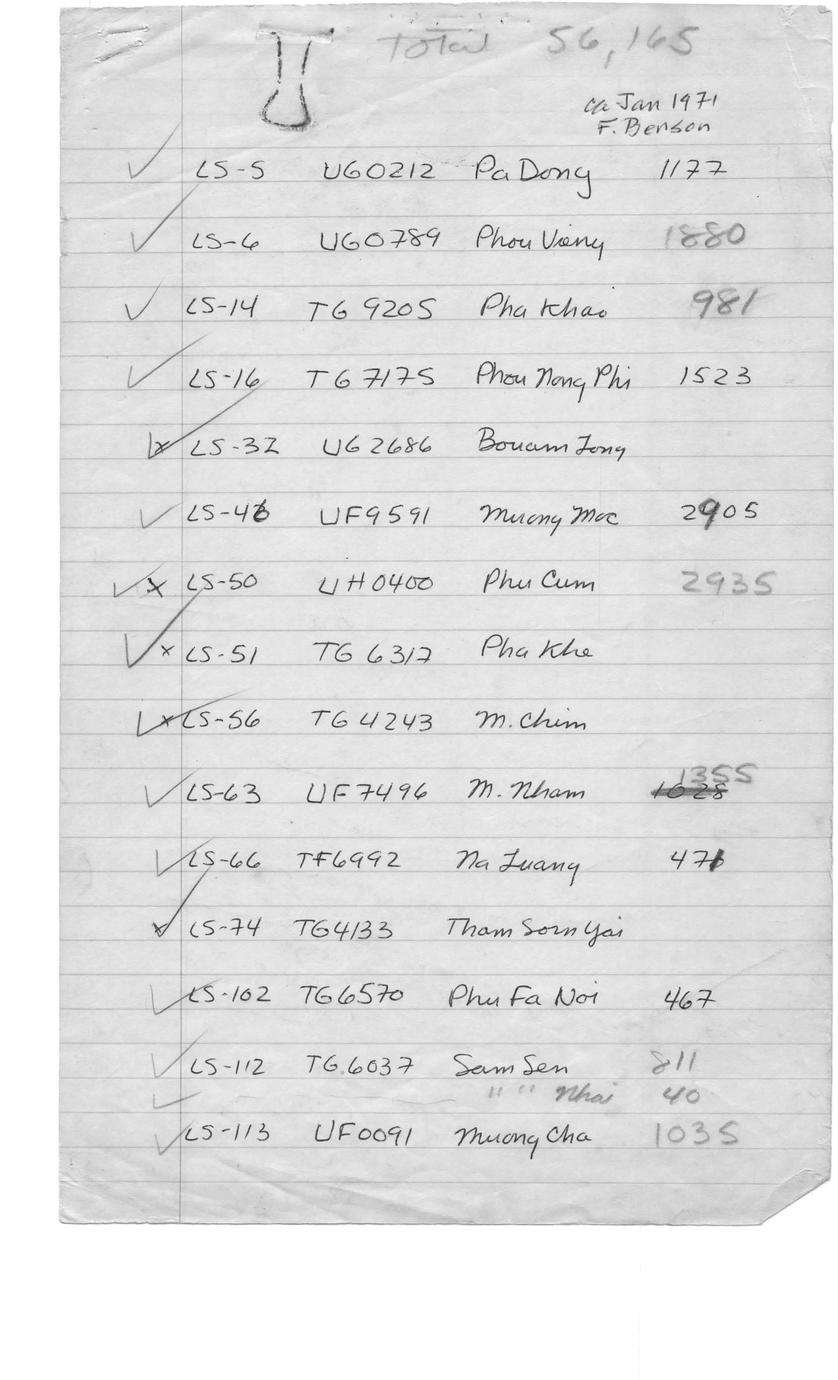 Total 56,165
ca Jan 1971
F. Benson
✓ LS-5 UG0212 Pa Dong 1177
✓ LS-6 UG0789 Phou Vieng 1880
✓ LS-14 TG 9205 Pha Khao 981
✓ LS-16 TG 7175 Phou Nong Phi 1523
✓ x LS-32 UG 2686 Bouam Long
✓ LS-46 UF9591 Muong Moc 2905
✓ x LS-50 UH0400 Phu Cum 2935
✓ x LS-51 TG 6317 Pha Khe
✓ x LS-56 TG 4243 M. Chim
1355
✓ LS-63 UF7496 M. Nham 1028
✓ LS-66 TF6992 Na Luang 471
✓ x LS-74 TG4133 Tham Sorn Yai
✓ LS-102 TG6570 Phu Fa Noi 467
✓ LS-112 TG.6037 Sam Sen 811
✓ " " " " Nhai 40
✓ LS-113 UF0091 Muong Cha 1035